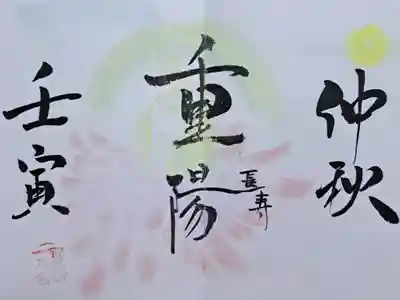 仲秋
重陽
長寿
壬寅